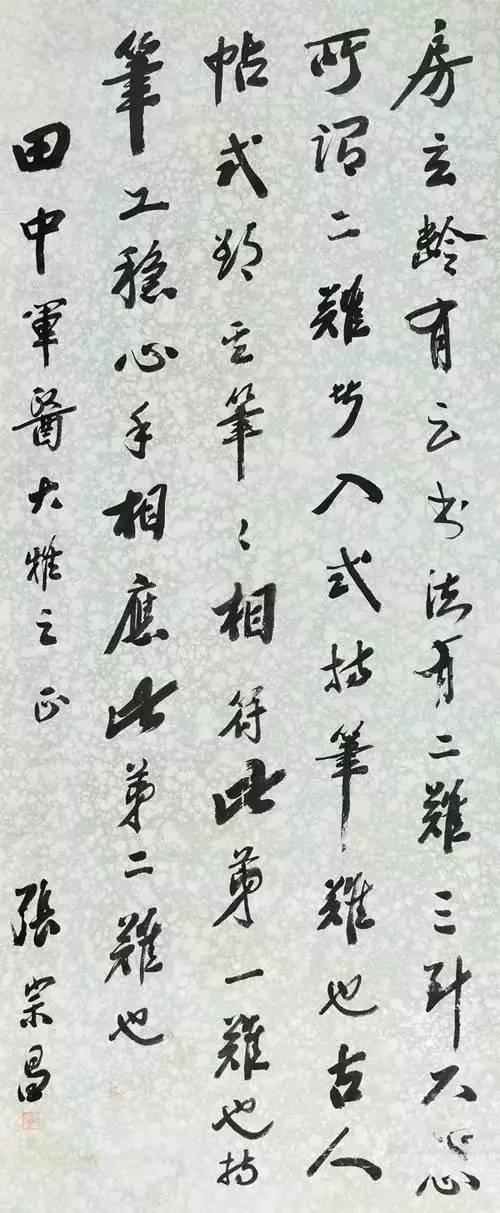 房玄齡有云書法有二難三不忘
所謂二難入式持筆難也古人
帖式筆々相符此第一難也持
筆工穩心手相應此第二難也
田中軍醫大雅之正
張宗昌